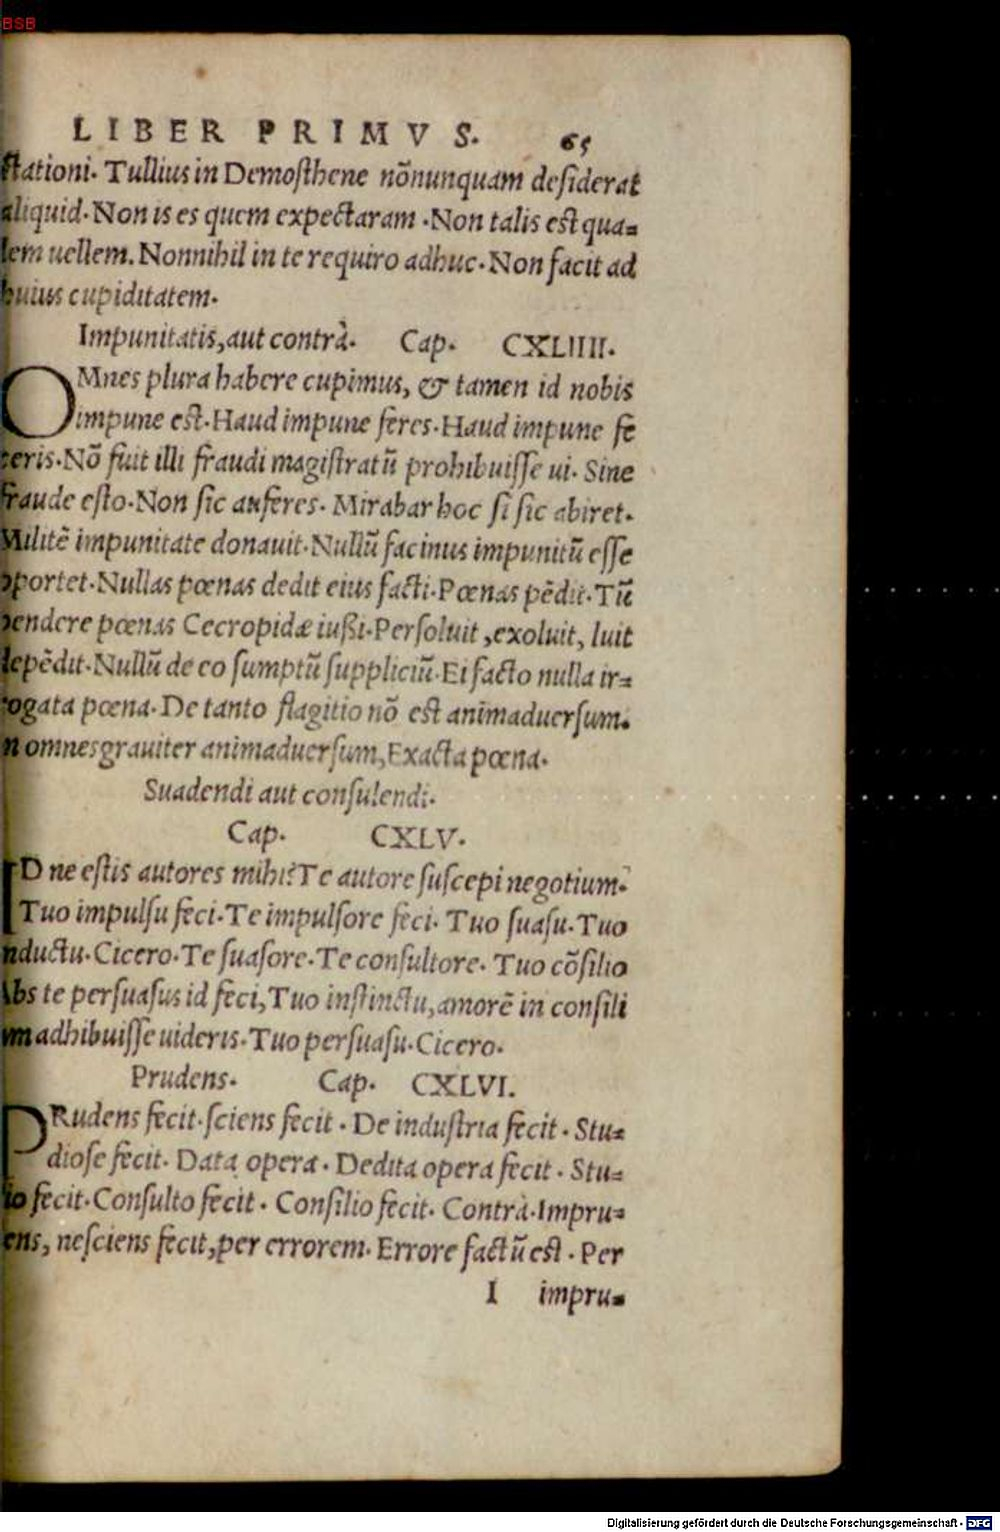 BSB
LIBER PRIMVS. 65
ſtationi. Tullius in Demoſthene nõnunquam deſiderat
aliquid. Non is es quem expectaram. Non talis eſt qua=
lem uellem. Nonnihil in te requiro adhuc. Non facit ad
huius cupiditatem.
Impunitatis, aut contrà. Cap. CXLIIII.
OMnes plura habere cupimus, & tamen id nobis
impune eſt. Haud impune feres. Haud impune fe
ceris. Nõ fuit illi fraudi magiſtratũ prohibuiſſe ui. Sine
fraude eſto. Non ſic auferes. Mirabar hoc ſi ſic abiret.
Militẽ impunitate donauit. Nullũ facinus impunitũ eſſe
oportet. Nullas pœnas dedit eius facti. Pœnas pẽdit. Tũ
pendere pœnas Cecropidæ iußi. Perſoluit, exoluit, luit
depẽdit. Nullũ de eo ſumptũ ſuppliciũ. Ei facto nulla ir=
rogata pœna. De tanto flagitio nõ eſt animaduerſum.
In omnes grauiter animaduerſum, Exacta pœna.
Suadendi aut conſulendi.
Cap. CXLV.
ID ne eſtis autores mihi? Te autore ſuſcepi negotium.
Tuo impulſu feci. Te impulſore feci. Tuo ſuaſu. Tuo
inductu. Cicero. Te ſuaſore. Te conſultore. Tuo cõſilio
Abs te perſuaſus id feci, Tuo inſtinctu, amorẽ in conſili
um adhibuiſſe uideris. Tuo perſuaſu. Cicero.
Prudens. Cap. CXLVI.
PRudens fecit. ſciens fecit. De induſtria fecit. Stu=
dioſe fecit. Data opera. Dedita opera fecit. Stu=
dio fecit. Conſulto fecit. Conſilio fecit. Contrà. Impru=
dens, neſciens fecit, per errorem. Errore factũ eſt. Per
I impru=
Digitalisierung gefördert durch die Deutsche Forschungsgemeinschaft - DFG